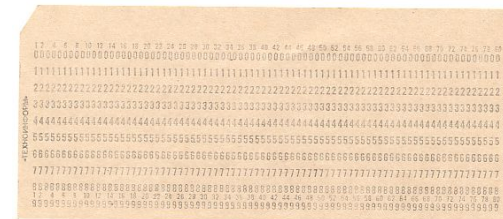 1 2 4 6 8 10 12 14 16 18 20 22 24 26 28 30 32 34 36 38 40 42 44 46 48 50 52 54 56 58 60 62 64 66 68 70 72 74 76 78 80
00000000000000000000000000000000000000000000000000000000000000000000000000000000
11111111111111111111111111111111111111111111111111111111111111111111111111111111
22222222222222222222222222222222222222222222222222222222222222222222222222222222
33333333333333333333333333333333333333333333333333333333333333333333333333333333
44444444444444444444444444444444444444444444444444444444444444444444444444444444
55555555555555555555555555555555555555555555555555555555555555555555555555555555
66666666666666666666666666666666666666666666666666666666666666666666666666666666
77777777777777777777777777777777777777777777777777777777777777777777777777777777
88888888888888888888888888888888888888888888888888888888888888888888888888888888
1 2 4 6 8 10 12 14 16 18 20 22 24 26 28 30 32 34 36 38 40 42 44 46 48 50 52 54 56 58 60 62 64 66 68 70 72 74 76 78 80
99999999999999999999999999999999999999999999999999999999999999999999999999999999